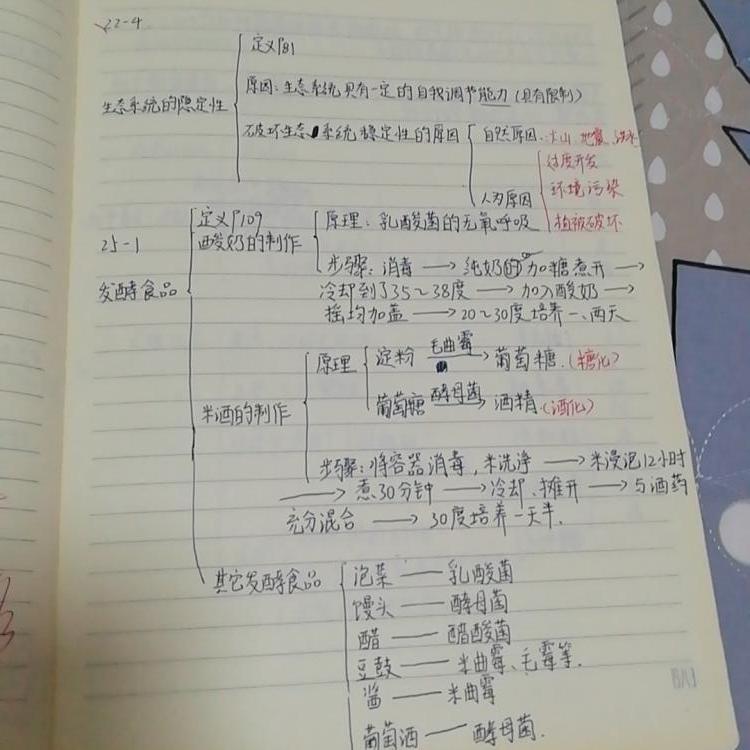 22-4
定义P81
原因：生态系统具有一定的自我调节能力（具有限制）
生态系统的稳定性
破坏生态系统稳定性的原因
自然原因：火山、地震、洪水
过度开发
环境污染
人为原因
植被破坏
25-1
发酵食品
定义P109
酸奶的制作
原理：乳酸菌的无氧呼吸
步骤：消毒→纯奶的加糖煮开→
冷却到了35～38度→加入酸奶→
摇均加盖→20～30度培养一、两天
米酒的制作
原理
淀粉 毛曲霉→葡萄糖.(糖化)
葡萄糖 酵母菌→酒精.(酒化)
步骤：将容器消毒，米洗净→米浸泡12小时
→煮30分钟→冷却、摊开→与酒药
充分混合→30度培养一天半.
其它发酵食品
泡菜——乳酸菌
馒头——酵母菌
醋——醋酸菌
豆鼓——米曲霉、毛霉等.
酱——米曲霉
葡萄酒——酵母菌.